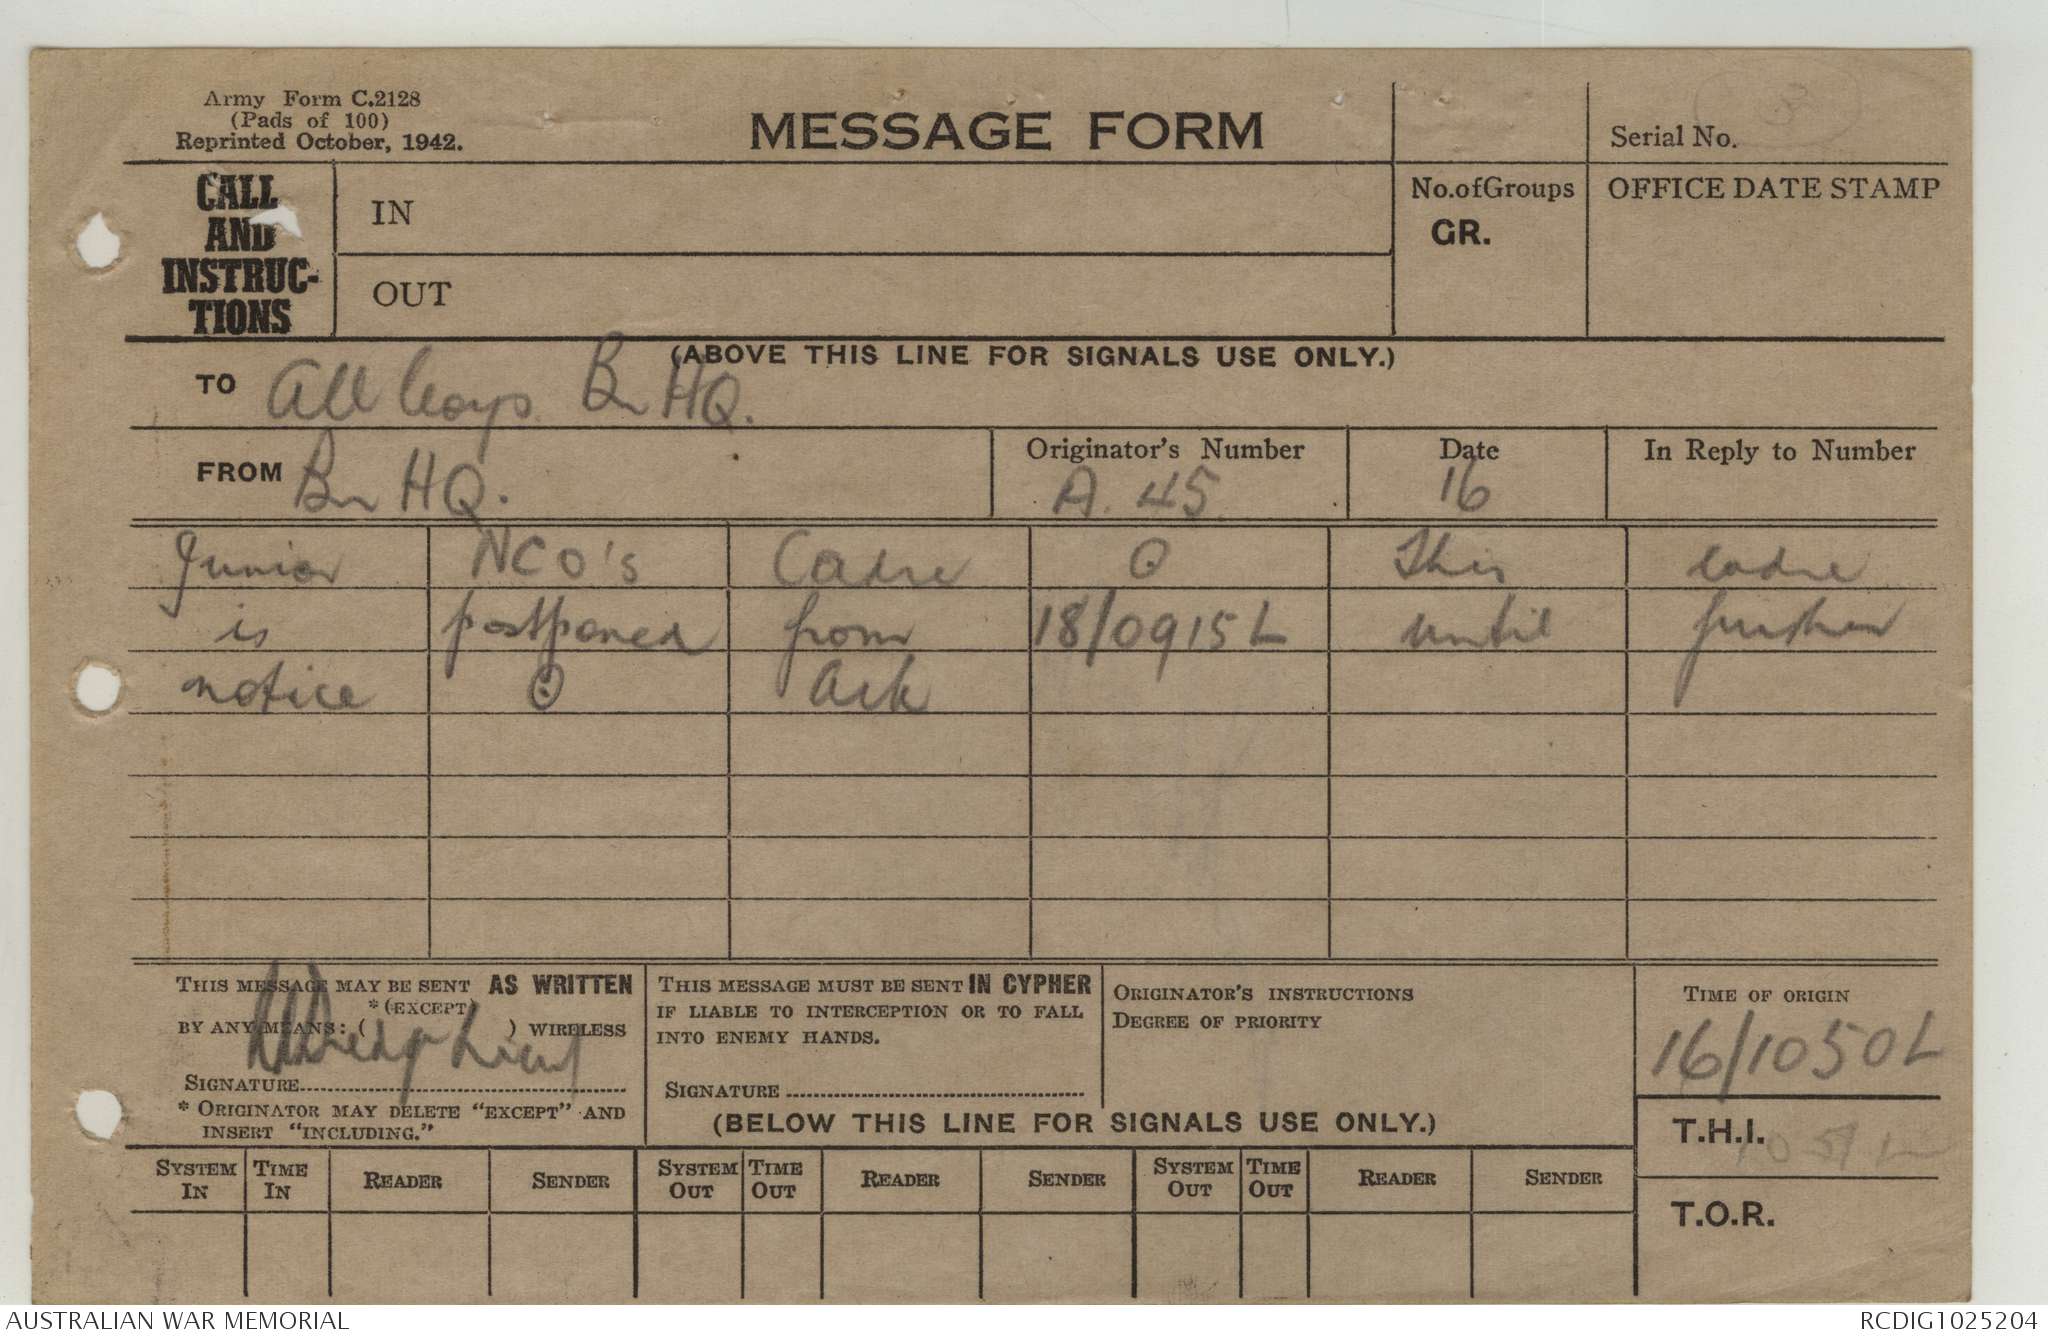 Army Form C.2128
(Pads of 100)
Reprinted October, 1942.
MESSAGE FORM
Serial No.
CALL
AND
INSTRUC-
TIONS
IN
OUT
No.ofGroups
GR.
OFFICE DATE STAMP
(ABOVE THIS LINE FOR SIGNALS USE ONLY.)
TO All Coys. Bn HQ.
FROM Bn HQ.
Originator's Number
A. 45
Date
16
In Reply to Number
Junior NCO's Cadre ⊙ This cadre
is postponed from 18/0915L until further
notice ⊙ Ack
THIS MESSAGE MAY BE SENT AS WRITTEN
*(EXCEPT)
BY ANY MEANS: ( ) WIRELESS
Lieut
SIGNATURE
* ORIGINATOR MAY DELETE "EXCEPT" AND
INSERT "INCLUDING."
THIS MESSAGE MUST BE SENT IN CYPHER
IF LIABLE TO INTERCEPTION OR TO FALL
INTO ENEMY HANDS.
SIGNATURE
ORIGINATOR'S INSTRUCTIONS
DEGREE OF PRIORITY
TIME OF ORIGIN
16/1050L
(BELOW THIS LINE FOR SIGNALS USE ONLY.)
T.H.I. 1051L
T.O.R.
SYSTEM IN TIME IN READER SENDER SYSTEM OUT TIME OUT READER SENDER SYSTEM OUT TIME OUT READER SENDER
AUSTRALIAN WAR MEMORIAL RCDIG1025204